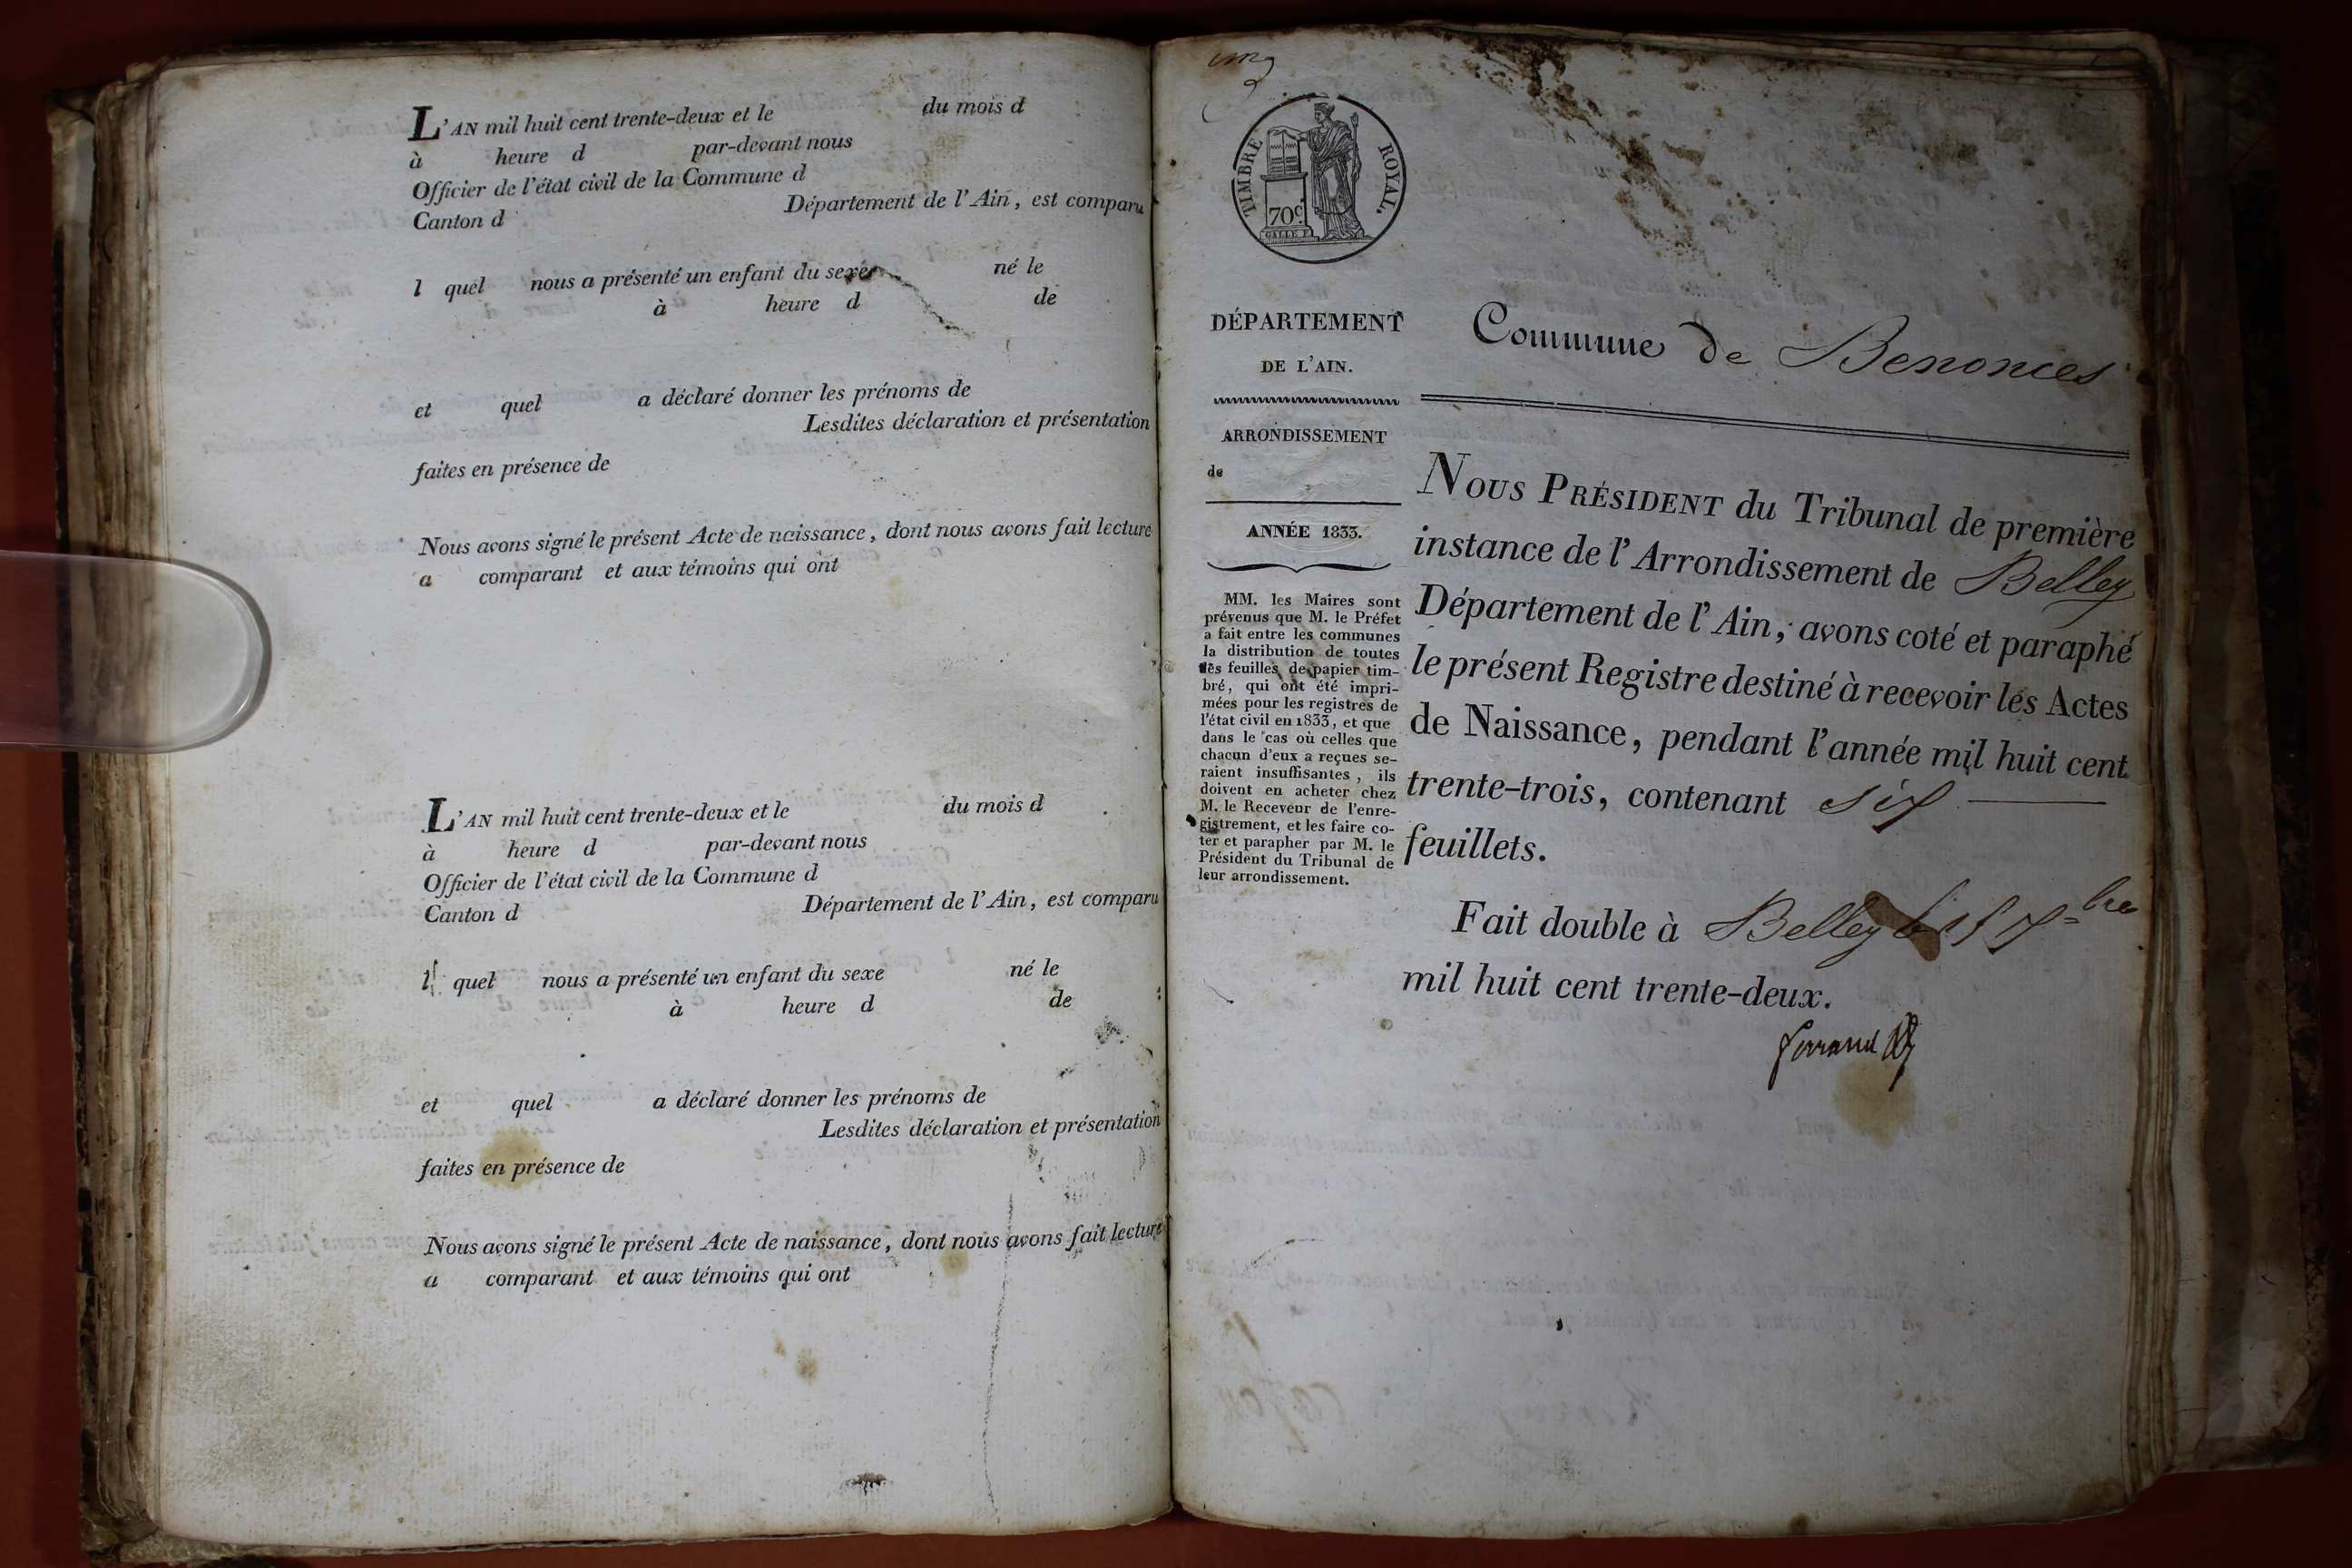 L'AN mil huit cent trente-deux et le du mois d
à heure d par-devant nous
Officier de l'état civil de la Commune d
Canton d Département de l'Ain, est comparu
l quel nous a présenté un enfant du sexe né le
à heure d de
et quel a déclaré donner les prénoms de
Lesdites déclaration et présentation
faites en présence de
Nous avons signé le présent Acte de naissance, dont nous avons fait lecture
a comparant et aux témoins qui ont
L'AN mil huit cent trente-deux et le du mois d
à heure d par-devant nous
Officier de l'état civil de la Commune d
Canton d Département de l'Ain, est comparu
l quel nous a présenté un enfant du sexe né le
à heure d de
et quel a déclaré donner les prénoms de
Lesdites déclaration et présentation
faites en présence de
Nous avons signé le présent Acte de naissance, dont nous avons fait lecture
a comparant et aux témoins qui ont
TIMBRE ROYAL.
70c
GALLE F.
DÉPARTEMENT
DE L'AIN.
ARRONDISSEMENT
de
ANNÉE 1833.
MM. les Maires sont
prévenus que M. le Préfet
a fait entre les communes
la distribution de toutes
les feuilles de papier tim-
bré, qui ont été impri-
mées pour les registres de
l'état civil en 1833, et que
dans le cas où celles que
chacun d'eux a reçues se-
raient insuffisantes, ils
doivent en acheter chez
M. le Receveur de l'enre-
gistrement, et les faire co-
ter et parapher par M. le
Président du Tribunal de
leur arrondissement.
Commune de Benonces
NOUS PRÉSIDENT du Tribunal de première
instance de l'Arrondissement de Belley
Département de l'Ain, avons coté et paraphé
le présent Registre destiné à recevoir les Actes
de Naissance, pendant l'année mil huit cent
trente-trois, contenant six
feuillets.
Fait double à Belley
mil huit cent trente-deux.